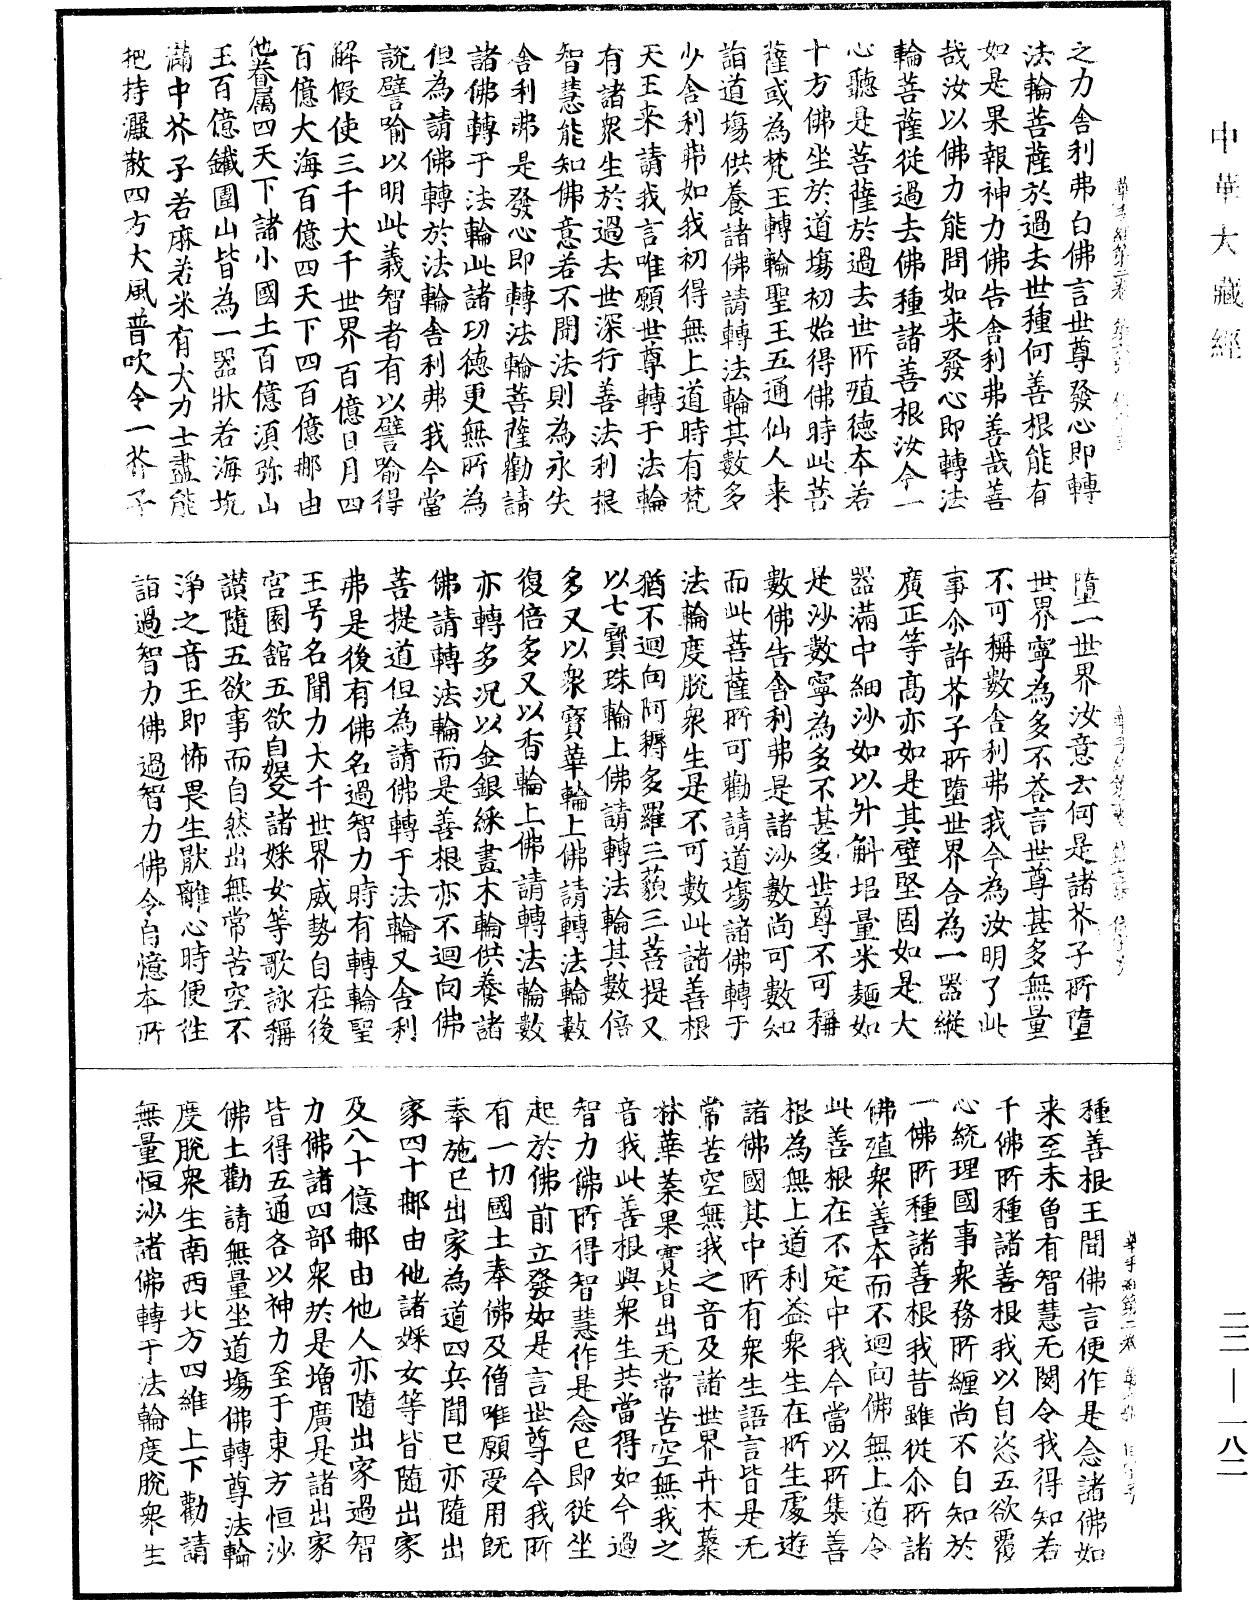 中華大藏經
之力舍利弗白佛言世尊發心即轉
法輪菩薩於過去世種何善根能有
如是果報神力佛告舍利弗善哉善
哉汝以佛力能問如来發心即轉法
輪菩薩從過去佛種諸善根汝今一
心聽是菩薩於過去世所殖德本若
十方佛坐於道場初始得佛時此菩
薩或為梵王轉輪聖王五通仙人来
詣道塲供養諸佛請轉法輪其數多
少舍利弗如我初得無上道時有梵
天王来請我言唯願世尊轉于法輪
有諸衆生於過去世深行善法利根
智慧能知佛意若不聞法則為永失
舍利弗是發心即轉法輪菩薩勸請
諸佛轉于法輪此諸功德更無所為
但為請佛轉於法輪舍利弗我今當
說譬喻以明此義智者有以譬喻得
解假使三千大千世界百億日月四
百億大海百億四天下四百億那由
他眷属四天下諸小國土百億須弥山
王百億鐵圍山皆為一器狀若海坑
滿中芥子若麻若米有大力士盡能
把持灑散四方大風普吹令一芥子
墮一世界汝意云何是諸芥子所墮
世界寧為多不荅言世尊甚多無量
不可稱數舍利弗我今為汝明了此
事尒許芥子所墮世界合為一器縱
廣正等高亦如是其壁堅固如是大
器滿中細沙如以升斛挹量米麵如
是沙數寧為多不甚多世尊不可稱
數佛告舍利弗是諸沙數尚可數知
而此菩薩所可勸請道塲諸佛轉于
法輪度脫衆生是不可數此諸善根
猶不迴向阿耨多羅三藐三菩提又
以七寶珠輪上佛請轉法輪其數倍
多又以衆寶華輪上佛請轉法輪數
復倍多又以香輪上佛請轉法輪數
亦轉多況以金銀綵畫木輪供養諸
佛請轉法輪而是善根亦不迴向佛
菩提道但為請佛轉于法輪又舍利
弗是後有佛名過智力時有轉輪聖
王号名聞力大千世界威勢自在後
宮園舘五欲自娱諸婇女等歌詠稱
讃隨五欲事而自然出無常苦空不
淨之音王即怖畏生猒離心時便往
詣過智力佛過智力佛令自憶本所
種善根王聞佛言便作是念諸佛如
来至未曽有智慧无閡令我得知若
千佛所種諸善根我以自恣五欲覆
心統理國事衆務所纏尚不自知於
一佛所種諸善根我昔雖從尒所諸
佛殖衆善本而不迴向佛無上道令
此善根在不定中我今當以所集善
根為無上道利益衆生在所生處遊
諸佛國其中所有衆生語言皆是无
常苦空無我之音及諸世界卉木藂
林華葉果實皆出无常苦空無我之
音我此善根與衆生共當得如今過
智力佛所得智慧作是念已即從坐
起於佛前立發如是言世尊今我所
有一切國土奉佛及僧唯願受用旣
奉施已出家為道四兵聞已亦隨出
家四十那由他諸婇女等皆隨出家
及八十億那由他人亦隨出家過智
力佛諸四部衆於是增廣是諸出家
皆得五通各以神力至于東方恒沙
佛土勸請無量坐道塲佛轉尊法輪
度脫衆生南西北方四維上下勸請
無量恒沙諸佛轉于法輪度脫衆生
二二—一八二